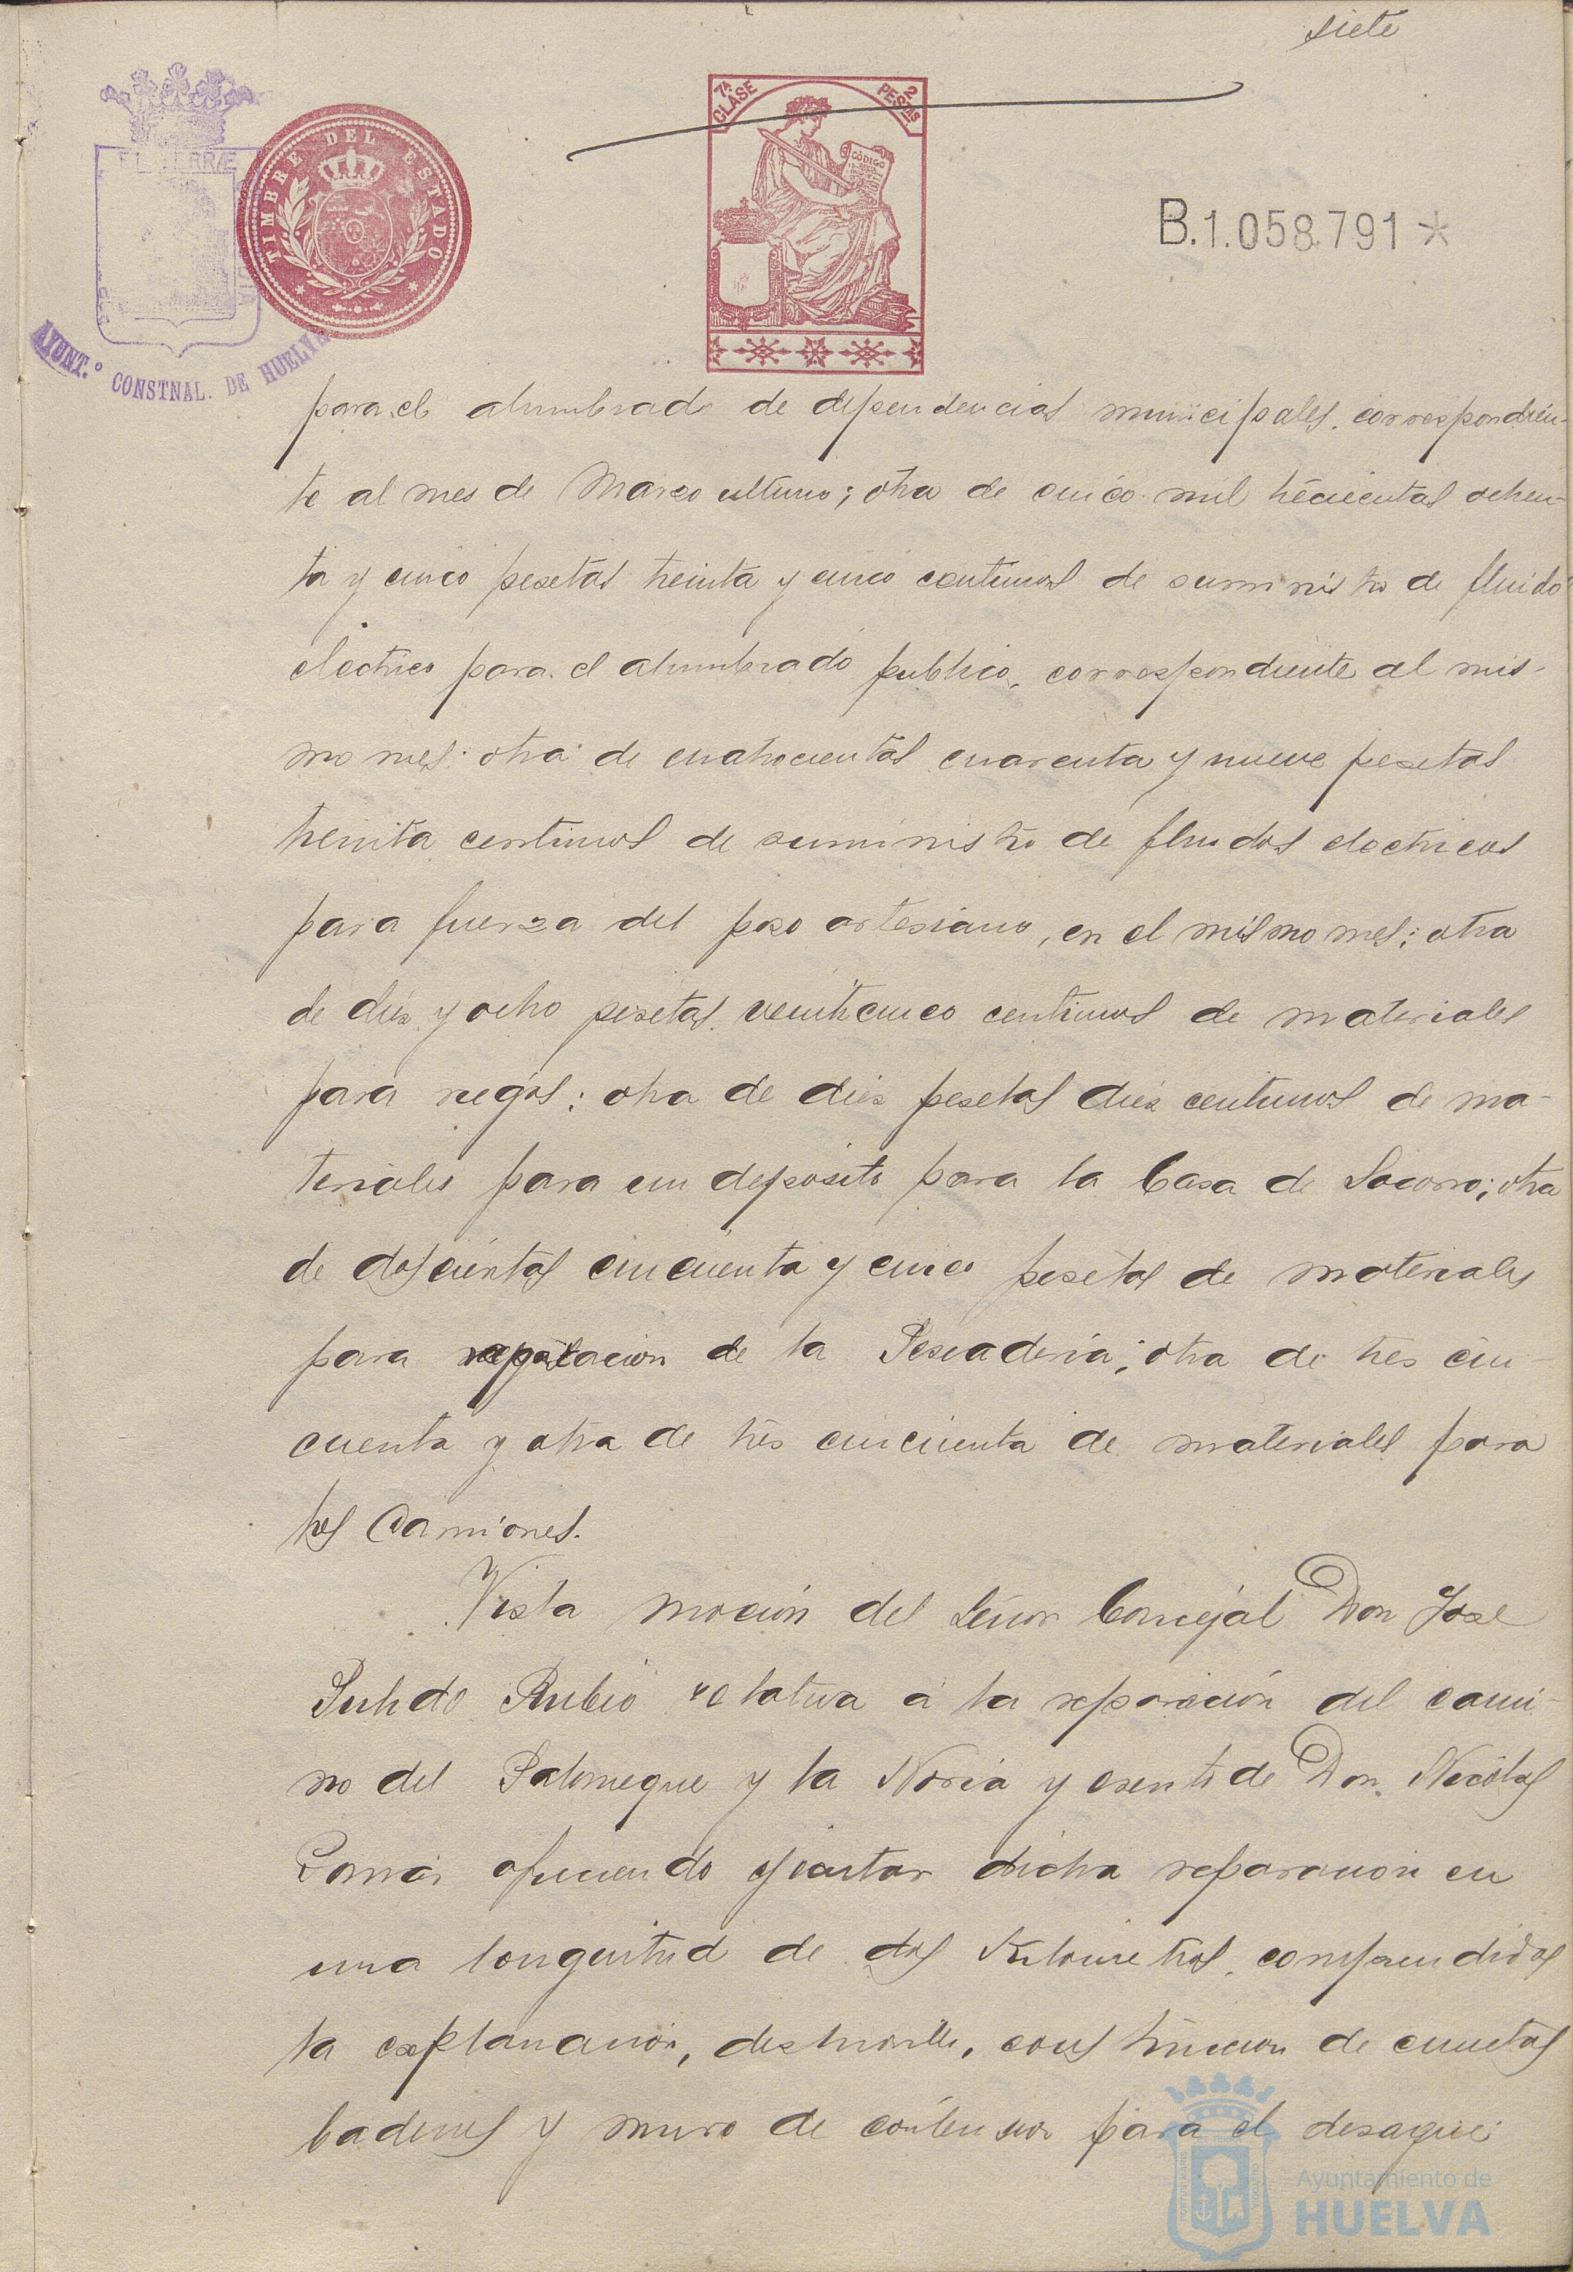 siete
7ª CLASE
2 PESTAS
CÓDIGO
TIMBRE DEL ESTADO
B.1.058.791*
AYUNT.º CONSTNAL. DE HUELVA
para el alumbrado de dependencias municipales, correspondien-
te al mes de Marzo ultimo; otra de cinco mil trecientas ochen-
ta y cinco pesetas treinta y cinco centimos de suministro de fluido
electrico para el alumbrado publico, correspondiente al mis-
mo mes; otra de cuatrocientas cuarenta y nueve pesetas
treinta centimos de suministro de fluidos electricos
para fuerza del pozo artesiano, en el mismo mes; otra
de diez y ocho pesetas veinticinco centimos de materiales
para riegos; otra de diez pesetas diez centimos de ma-
teriales para un deposito para la Casa de Socorro; otra
de doscientas cincuenta y cinco pesetas de materiales
para reparacion de la Pescaderia; otra de tres cin-
cuenta y otra de tres cincuenta de materiales para
los Camiones.
Vista moción del Señor Concejal Don Jose
Pulido Rubio relativa á la reparación del cami-
no del Palomeque y la Noria y escrito de Don Nicolas
ofreciendo ejecutar dicha reparacion en
una longuitud de dos Kilometros, comprendidos
la explanación, desmonte, construccion de cunetas
badenes y muro de contension para el desagüe
Ayuntamiento de
HUELVA